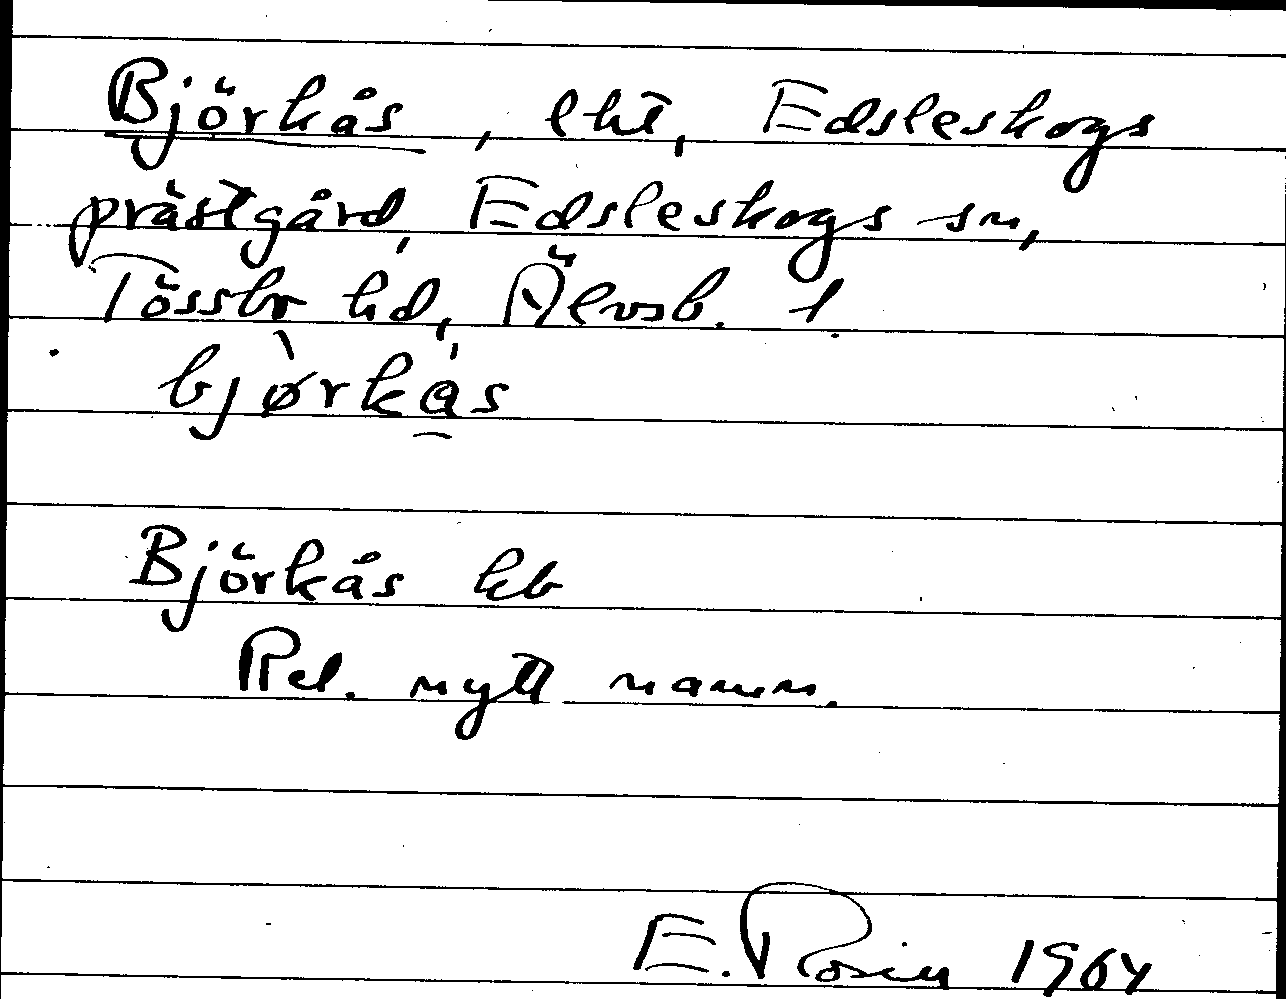 Björkås, lht, Edsleskogs
prästgård, Edsleskogs sn,
Tössbr hd, Älvsb. l.
bjø̀rkå̀s
Björkås kb
Rel. nytt namn.
E. Rosén 1964